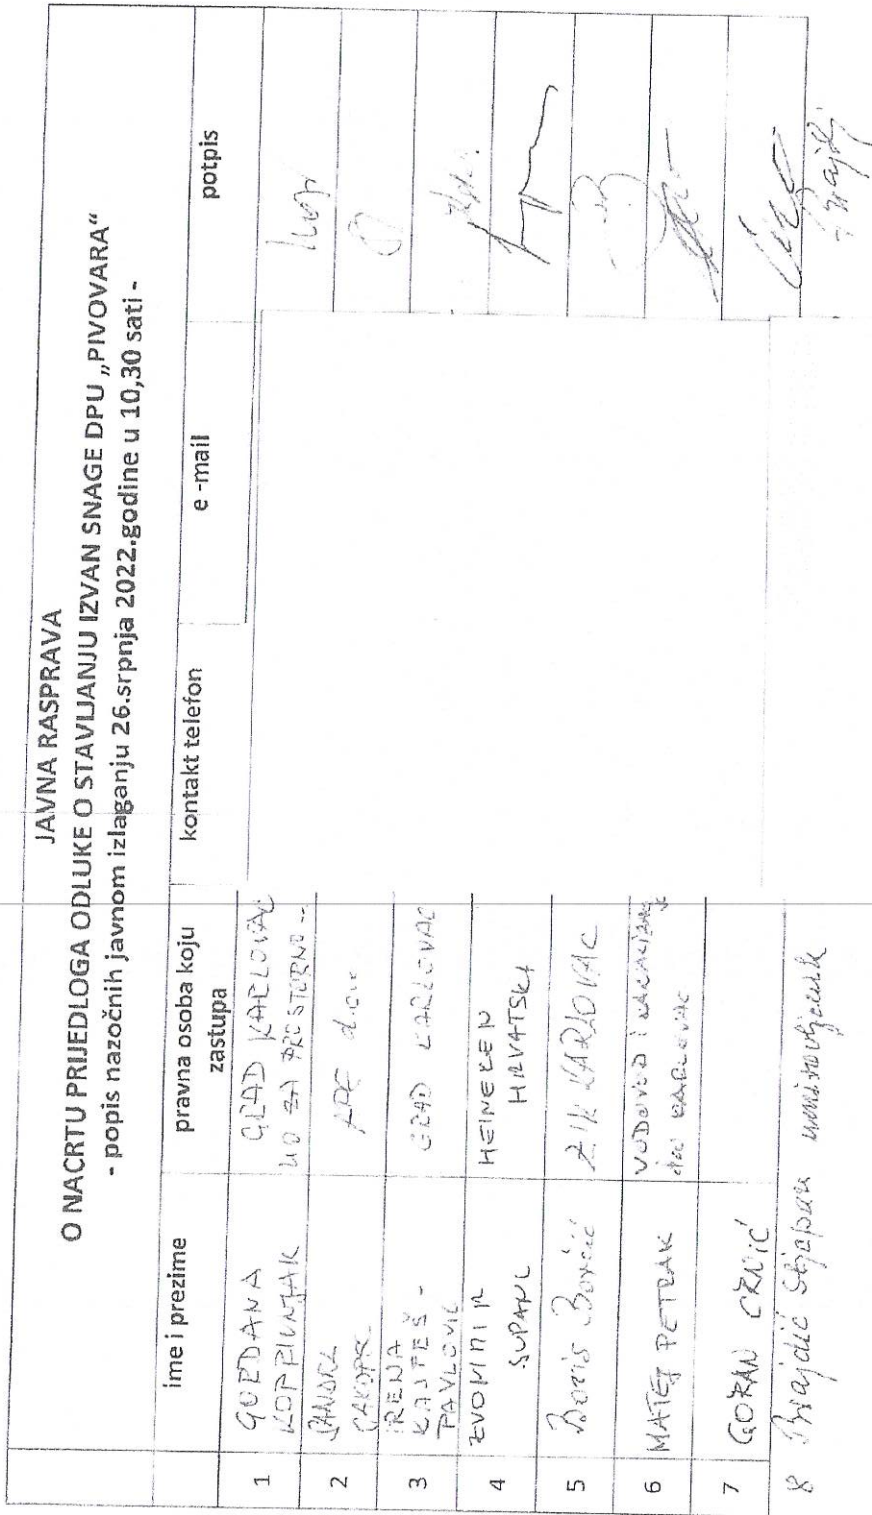 JAVNA RASPRAVA
O NACRTU PRIJEDLOGA ODLUKE O STAVLJANJU IZVAN SNAGE DPU „PIVOVARA“
- popis nazočnih javnom izlaganju 26.srpnja 2022.godine u 10,30 sati -
ime i prezime
pravna osoba koju zastupa
kontakt telefon
e -mail
potpis
1
GORDANA
KOPPLUNJAK
GRAD KARLOVAC
UO ZA PROSTORNO --
2
d.o.o.
3
IRENA
KAJFEŠ -
PAVLOVIĆ
GRAD KARLOVAC
4
ZVONIMIR
HEINEKEN
HRVATSKA
5
Boris
KARLOVAC
6
MATEJ PETRAK
VODOVOD I KANALIZACIJA
doo KARLOVAC
7
GORAN CRNIĆ
8 Brajdić Stjepan umirovljenik